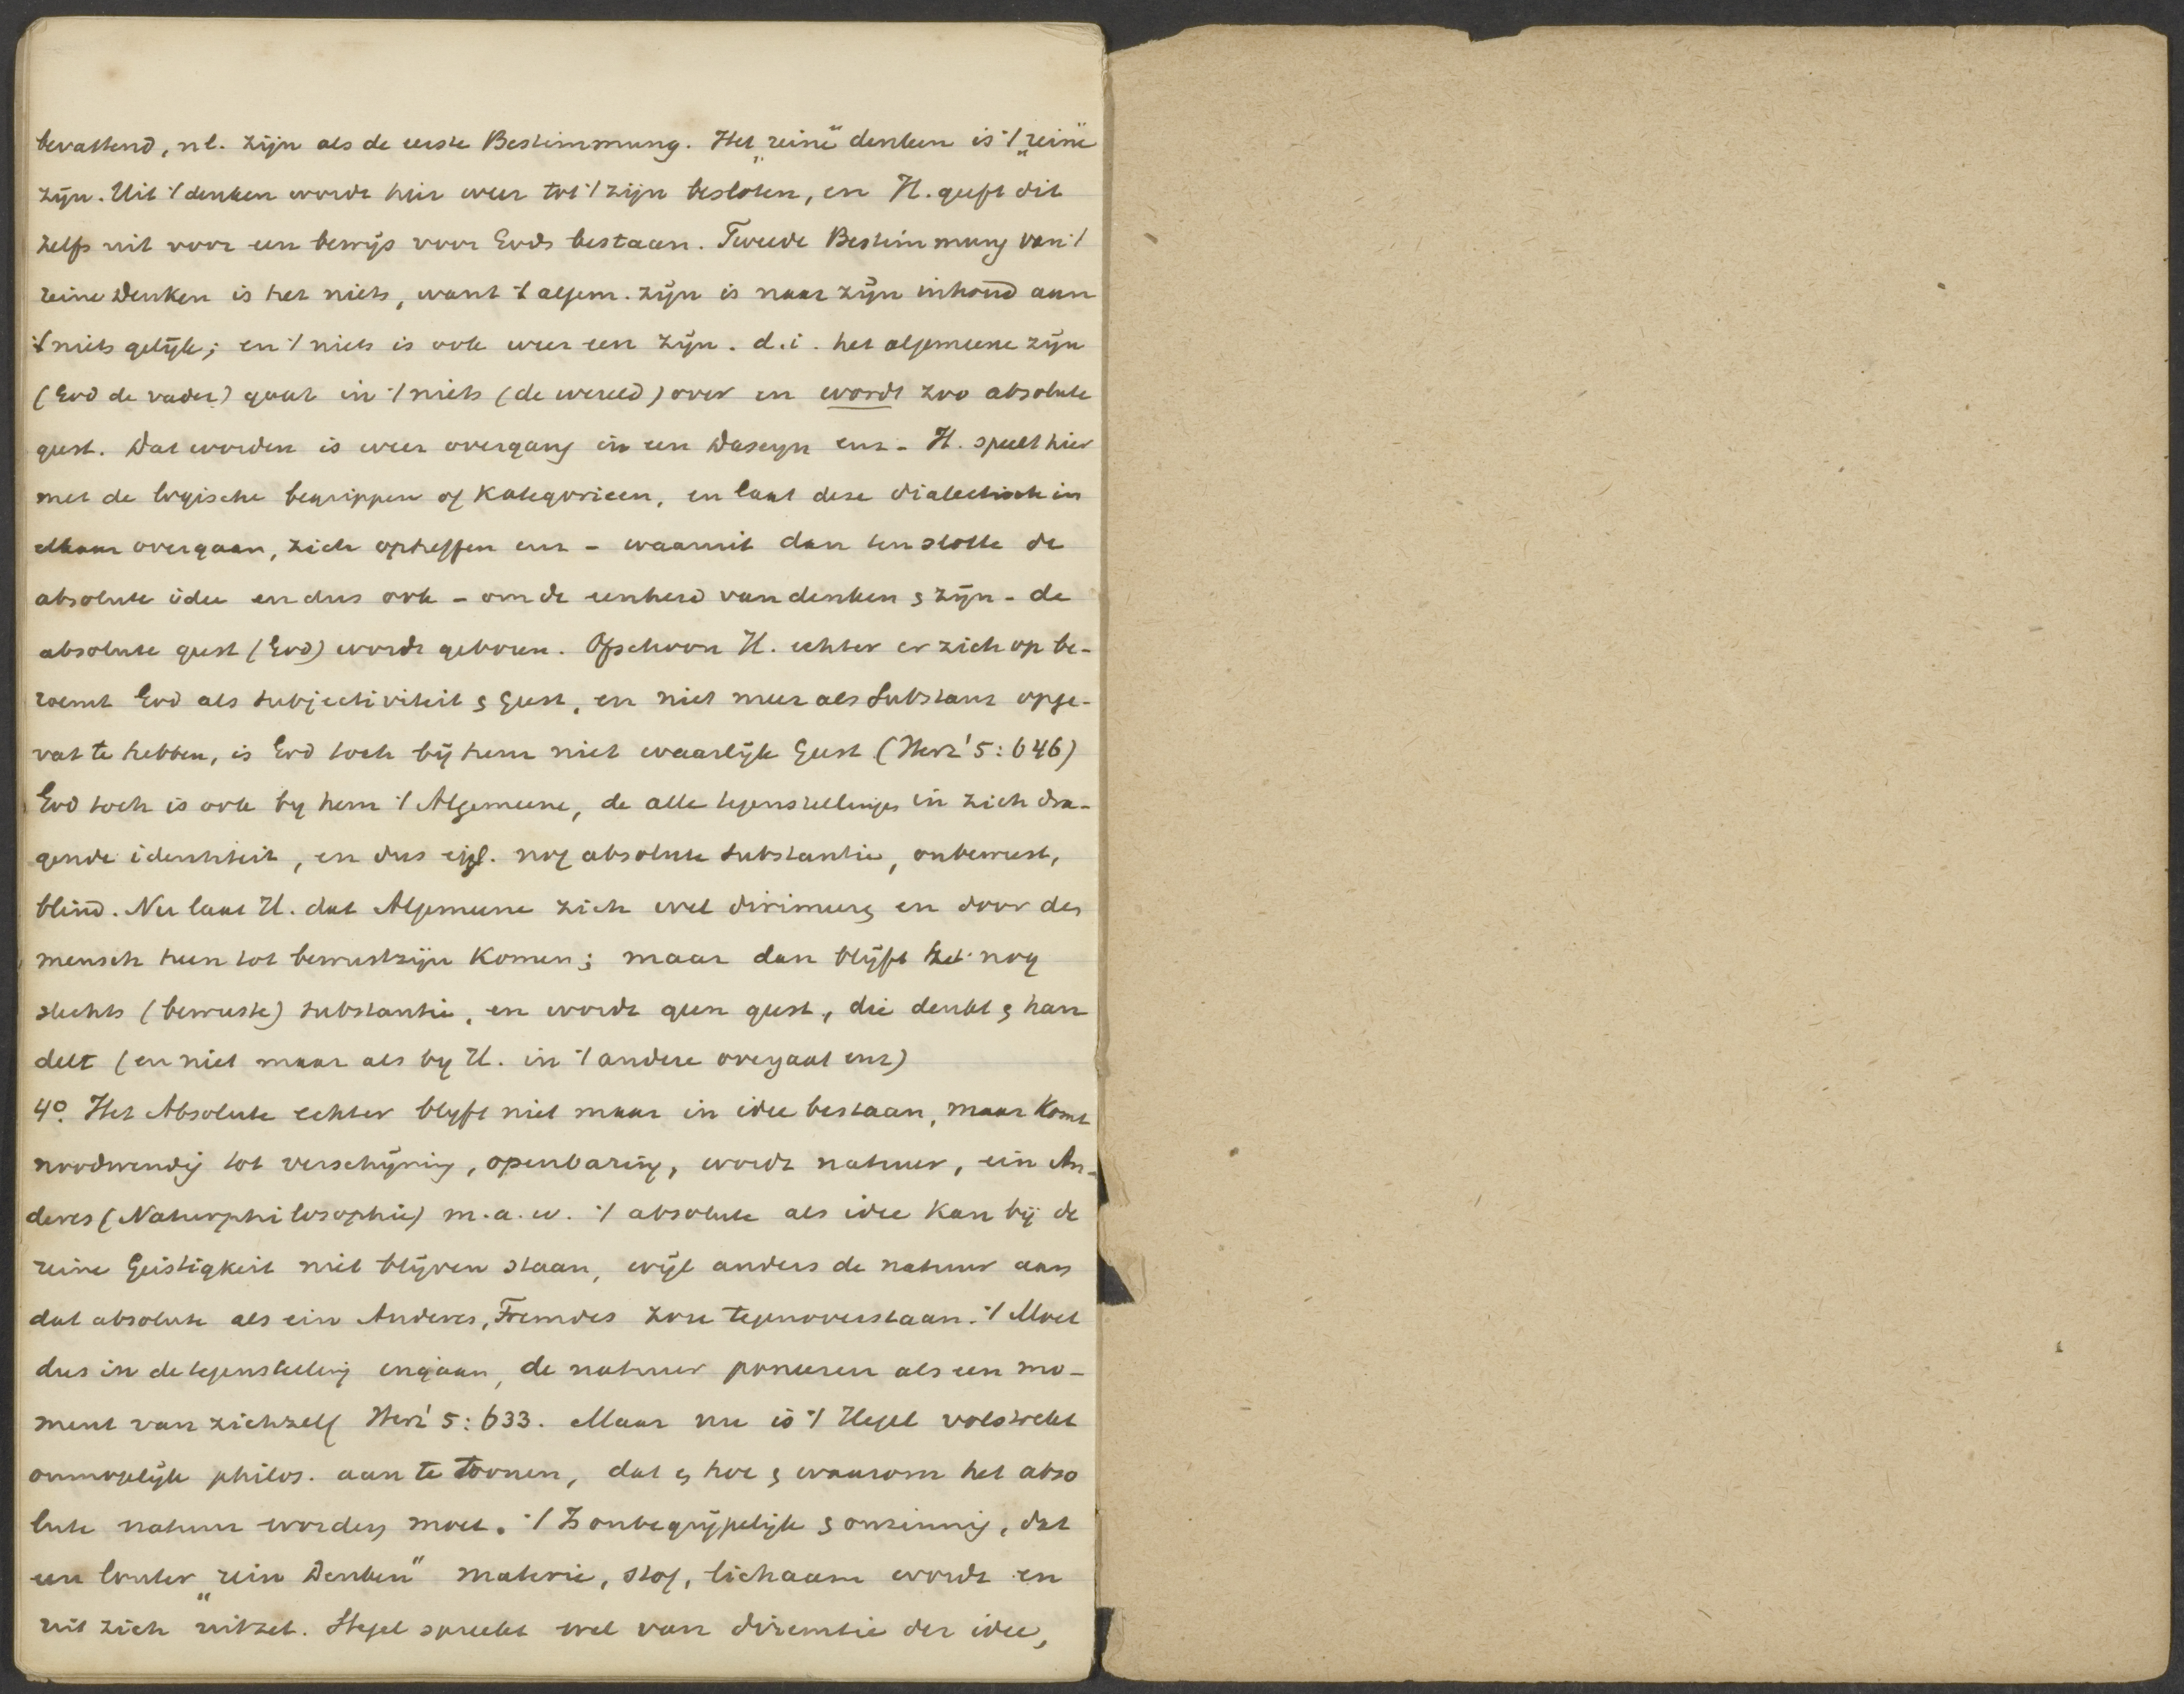 bevattend, nl. zijn als de eerste Bestimmung. Het „reine" denken is 't „reine"
zijn. Uit 't denken wordt hier weer tot 't zijn besloten, en H. geeft dit
zelfs uit voor een bewijs voor Gods bestaan. Tweede Bestimmung van 't
reine Denken is het niets, want 't algem. zijn is naar zijn inhoud aan
't niets gelijk; en 't niets is ook weer een zijn. d.i. het algemeene zijn
(God de vader) gaat in 't niets (de wereld) over en wordt zoo absolute
geest. Dat worden is weer overgang in een Daseyn enz - H. speelt hier
met de logische begrippen of Kategorieen, en laat deze dialectisch in
elkaar overgaan, zich opheffen enz - waaruit dan ten slotte de
absolute idee en dus ook - om de eenheid van denken & zijn - de
absolute geest (God) wordt geboren. Ofschoon H. echter er zich op be-
roemt God als subjectiviteit & geest, en niet meer als Substanz opge-
vat te hebben, is God toch bij hem niet waarlijk Geest (Herz' 5: 646)
God toch is ook by hem 't Algemeene, de alle tegenstellingen in zich dra-
gende identiteit, en dus eigl. nog absolute substantie, onbewust,
blind. Nu laat H. dat Algemeene zich wel dirimeeren en door den
mensch heen tot bewustzijn komen; maar dan blijft het nog
slechts (bewuste) substantie, en wordt geen geest, die denkt & han
delt (en niet maar als by H. in 't andere overgaat enz)
4°. Het Absolute echter blyft niet maar in idee bestaan, maar komt
noodwendig tot verschijning, openbaring, wordt natuur, ein An-
deres (Naturphilosophie) m.a.w. 't absolute als idee kan bij de
reine Geistigkeit niet blijven staan, wijl anders de natuur aan
dat absolute als ein Anderes, Fremdes zou tegenoverstaan. 't Moet
dus in de tegenstelling ingaan, de natuur poneeren als een mo-
ment van zichzelf Herz' 5: 633. Maar nu is 't Hegel volstrekt
onmogelijk philos. aan te toonen, dat & hoe & waarom het abso
lute natuur worden moet. 't Is onbegrijpelijk & onzinnig, dat
een louter „rein Denken" materie, stof, lichaam wordt en
uit zich uitzet. Hegel spreekt wel van diremtie der idee,